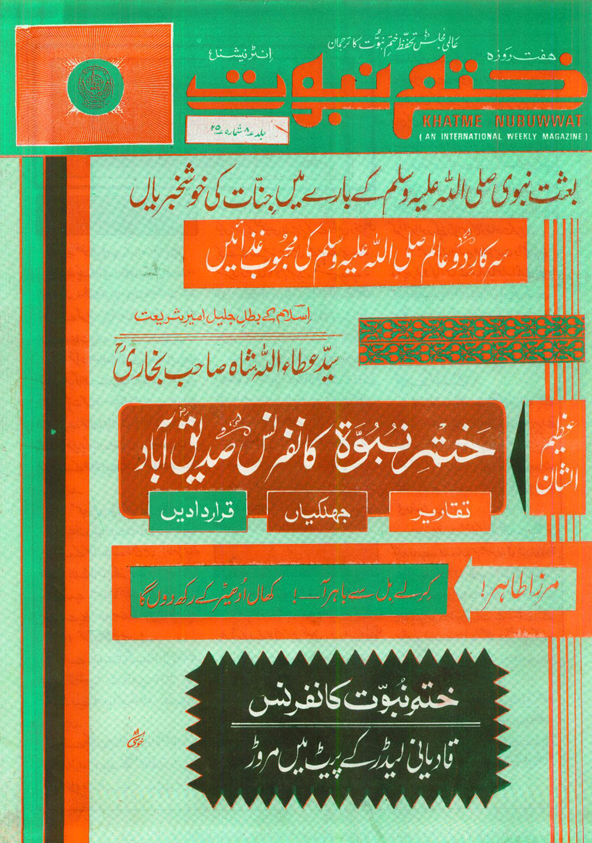 عالمی مجلس تحفظ ختم نبوت کا ترجمان
ہفت روزہ
انٹرنیشنل
ختم نبوت
KHATME NUBUWWAT
( AN INTERNATIONAL WEEKLY MAGAZINE )
جلد ۸ شمارہ ۲۵
بعثت نبوی صلی اللہ علیہ وسلم کے بارے میں جنات کی خوشخبریاں
سرکار دو عالم صلی اللہ علیہ وسلم کی محبوب غذائیں
اسلام کے بطل جلیل امیر شریعت
سید عطاء اللہ شاہ صاحب بخاریؒ
عظیم
الشان
ختم نبوۃ کانفرنس صدیق آباد
تقاریر
جھلکیاں
قراردادیں
مرزا طاہر!
کرلے بل سے باہر آ۔۔! کھال ادھیڑ کے رکھ دوں گا
ختم نبوت کانفرنس
قادیانی لیڈر کے پیٹ میں مروڑ